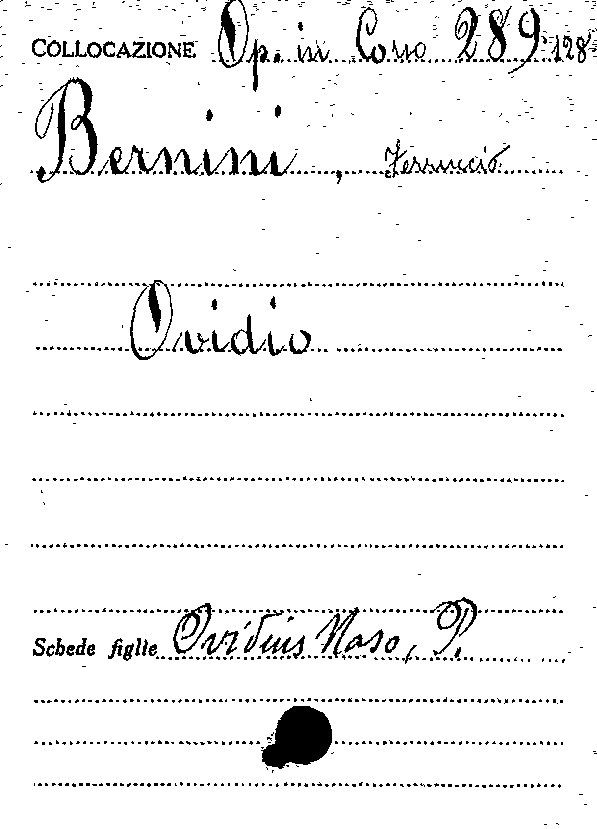 COLLOCAZIONE Op. in Corso 289.128
Bernini, Ferruccio
Ovidio
Schede figlie Ovidius Naso, P.